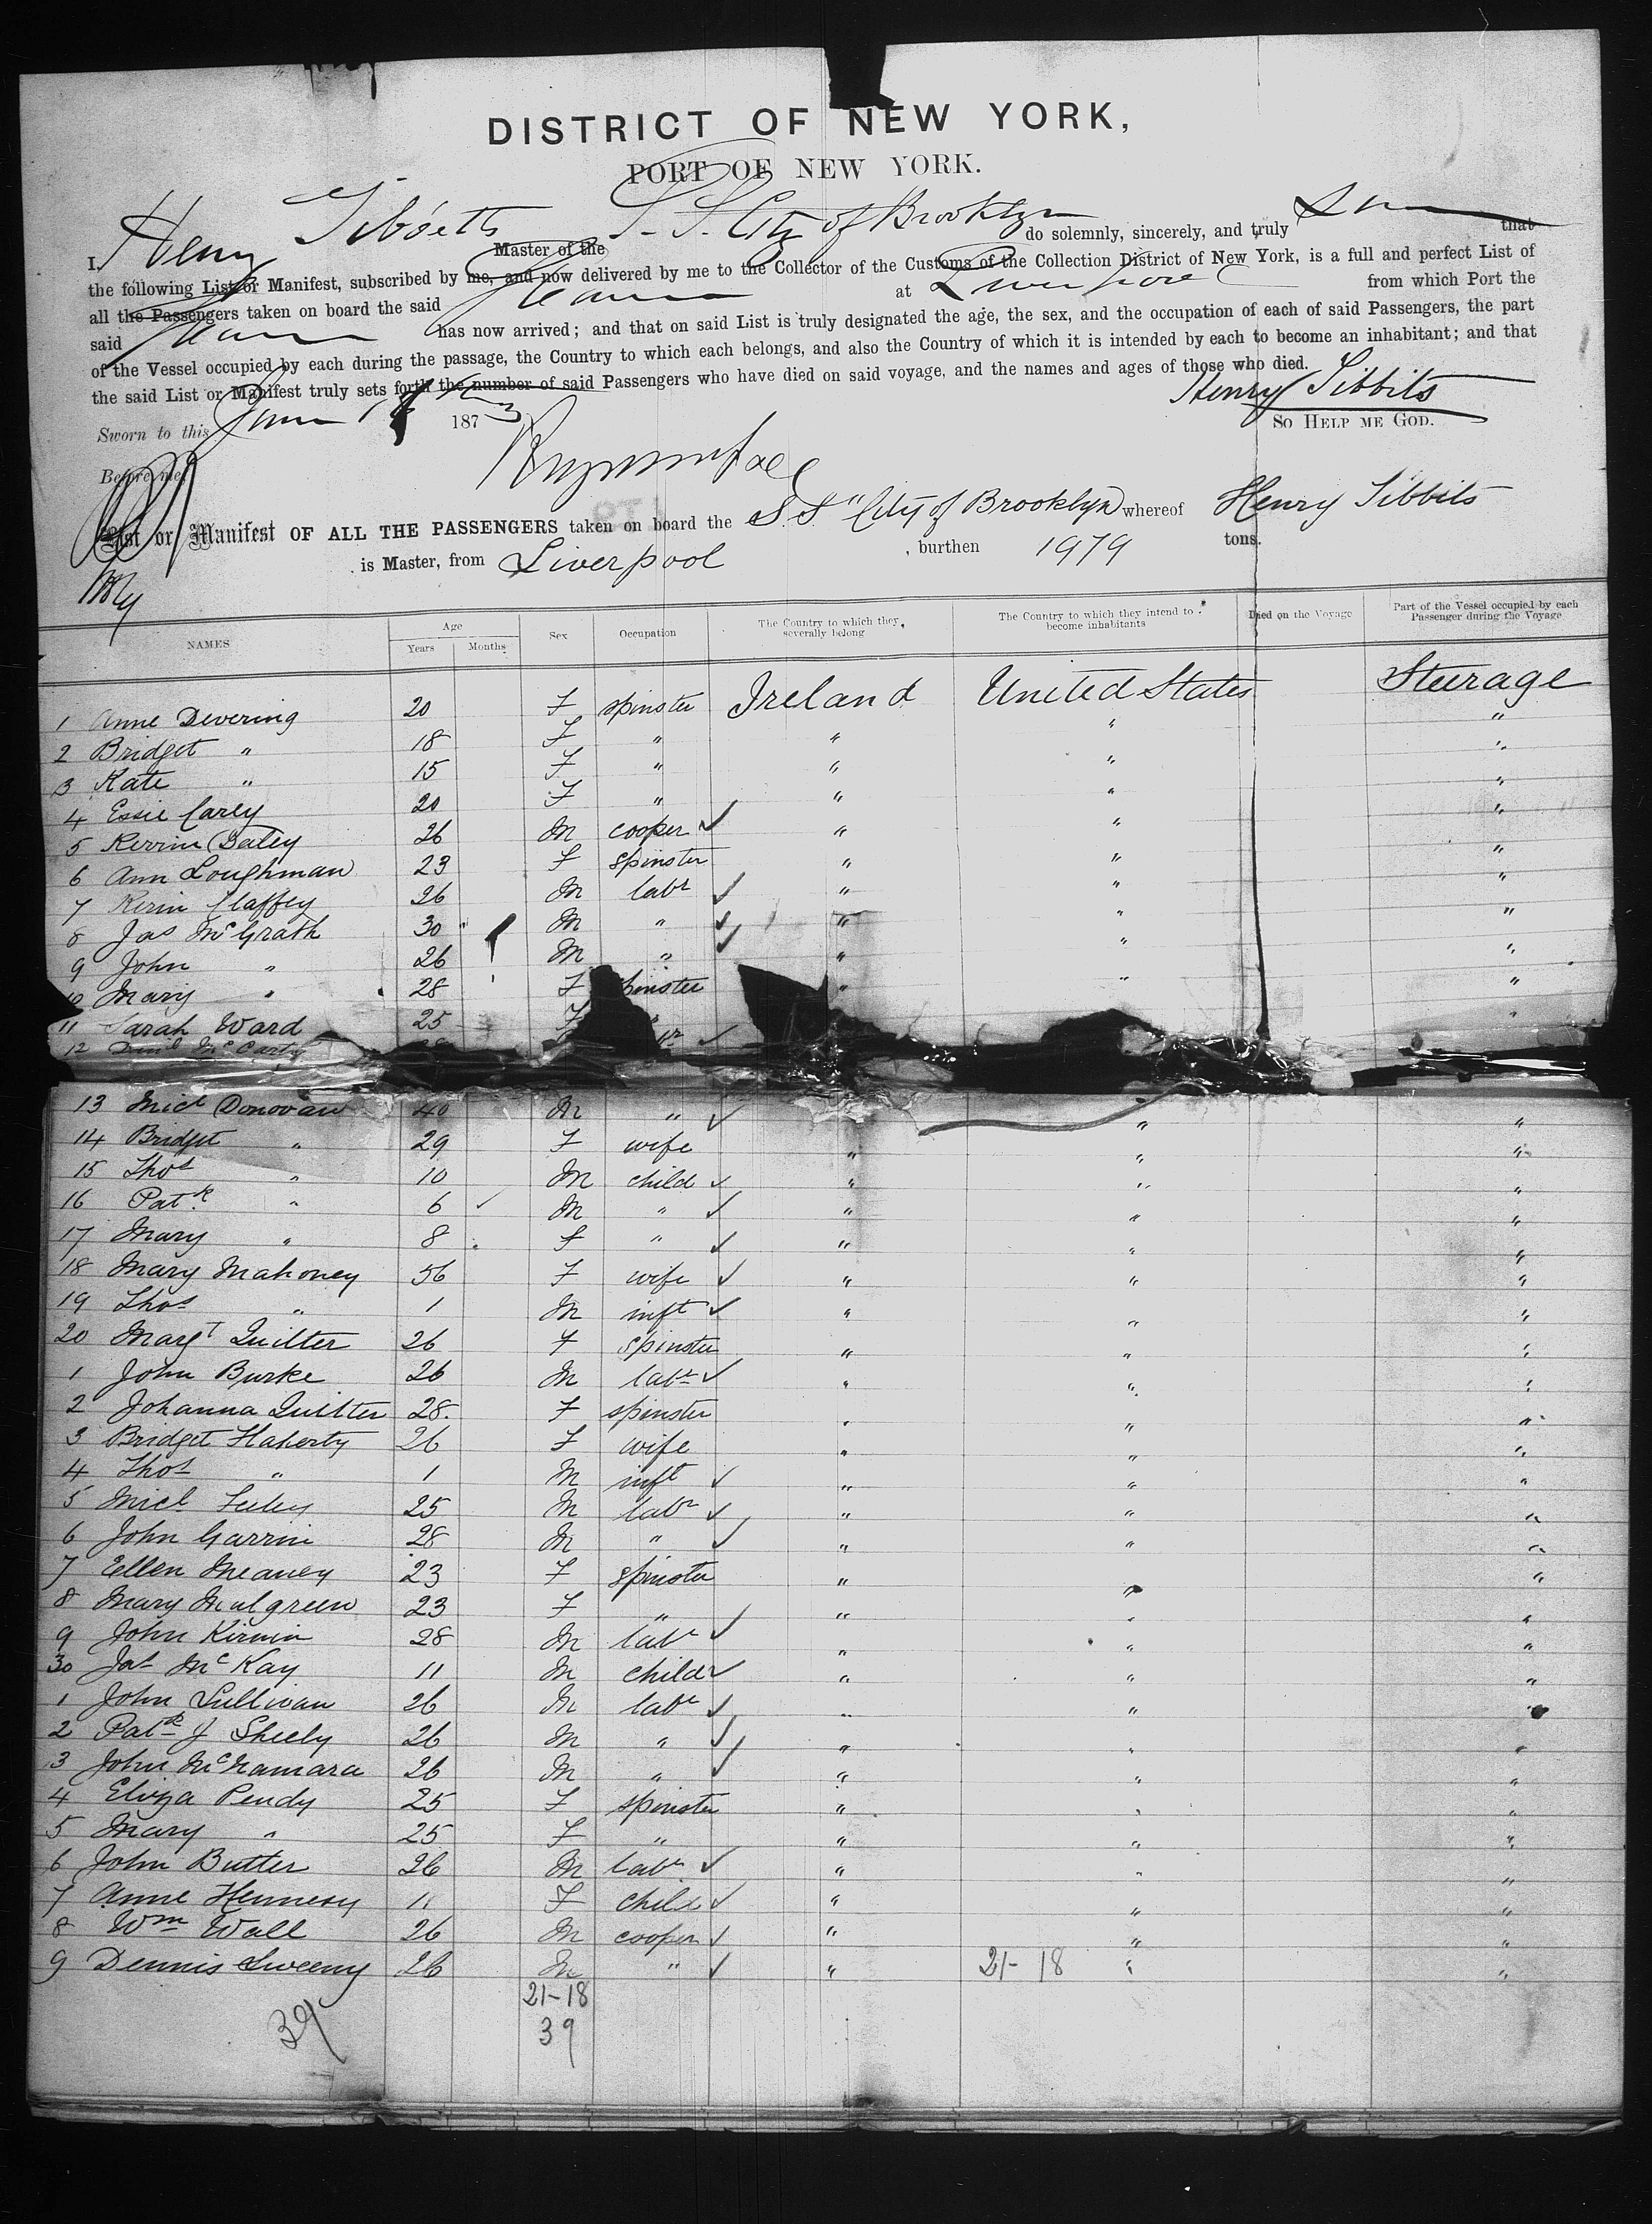 DISTRICT OF NEW YORK,
PORT OF NEW YORK.
I, Henry Tibbetts Master of the S. S. City of Brooklyn do solemnly, sincerely, and truly Swear that
the following List or Manifest, subscribed by me, and now delivered by me to the Collector of the Customs of the Collection District of New York, is a full and perfect List of
all the Passengers taken on board the said Steamer at Liverpool from which Port the
said Steamer has now arrived; and that on said List is truly designated the age, the sex, and the occupation of each of said Passengers, the part
of the Vessel occupied by each during the passage, the Country to which each belongs, and also the Country of which it is intended by each to become an inhabitant; and that
the said List or Manifest truly sets forth the number of said Passengers who have died on said voyage, and the names and ages of those who died.
Henry Tibbits
Sworn to this 1873 So Help me God.
Before me,
List or Manifest OF ALL THE PASSENGERS taken on board the S S "City of Brooklyn whereof Henry Tibbits
is Master, from Liverpool , burthen 1979 tons.
NAMES Age Years Months Sex Occupation The Country to which they severally belong The Country to which they intend to become inhabitants Died on the Voyage Part of the Vessel occupied by each Passenger during the Voyage
1 Anne Devering 20 F spinster Ireland United States Steerage
2 Bridget " 18 F " " " "
3 Kate " 15 F " " " "
4 Essie Carey 20 F " " " "
5 Bailey 26 M cooper ✓ " " "
6 Ann Loughman 23 F spinster " " "
7 Claffey 26 M labr ✓ " " "
8 Jas McGrath 30 M " ✓ " " "
9 John " 26 M " ✓ " " "
10 Mary " 28 F spinster " " "
11 Sarah Ward 25 F " "
12 McCarty ✓
13 Micl Donovan 40 M " ✓ " "
14 Bridget " 29 F wife " " "
15 Thos " 10 M child ✓ " " "
16 Patk " 6 M " ✓ " " "
17 Mary " 8 f " ✓ " " "
18 Mary Mahoney 56 F wife ✓ " " "
19 Thos " 1 M inft ✓ " " "
20 Margt Quilter 26 F spinster " " "
1 John Burke 26 M labr ✓ " " "
2 Johanna Quilter 28 F spinster " " "
3 Bridget Flaherty 26 F wife " " "
4 Thos " 1 M inft ✓ " " "
5 Micl Feeley 25 M labr ✓ " " "
6 John Garrin 28 M " ✓ " " "
7 Ellen Meaney 23 F spinster " " "
8 Mary Mulgreen 23 F " " " "
9 John Kirwin 28 M labr ✓ " " "
30 Jas McKay 11 M child ✓ " " "
1 John Sullivan 26 M labr ✓ " " "
2 Patk J Sheely 26 M " ✓ " " "
3 John McNamara 26 M " ✓ " " "
4 Eliza Pendy 25 F spinster " " "
5 Mary " 25 F " " " "
6 John Butter 26 M labr ✓ " " "
7 Anne Hennesy 11 F child ✓ " " "
8 Wm Wall 26 M cooper ✓ " " "
9 Dennis Sweeny 26 M " ✓ " 21-18 " "
21-18
39 39